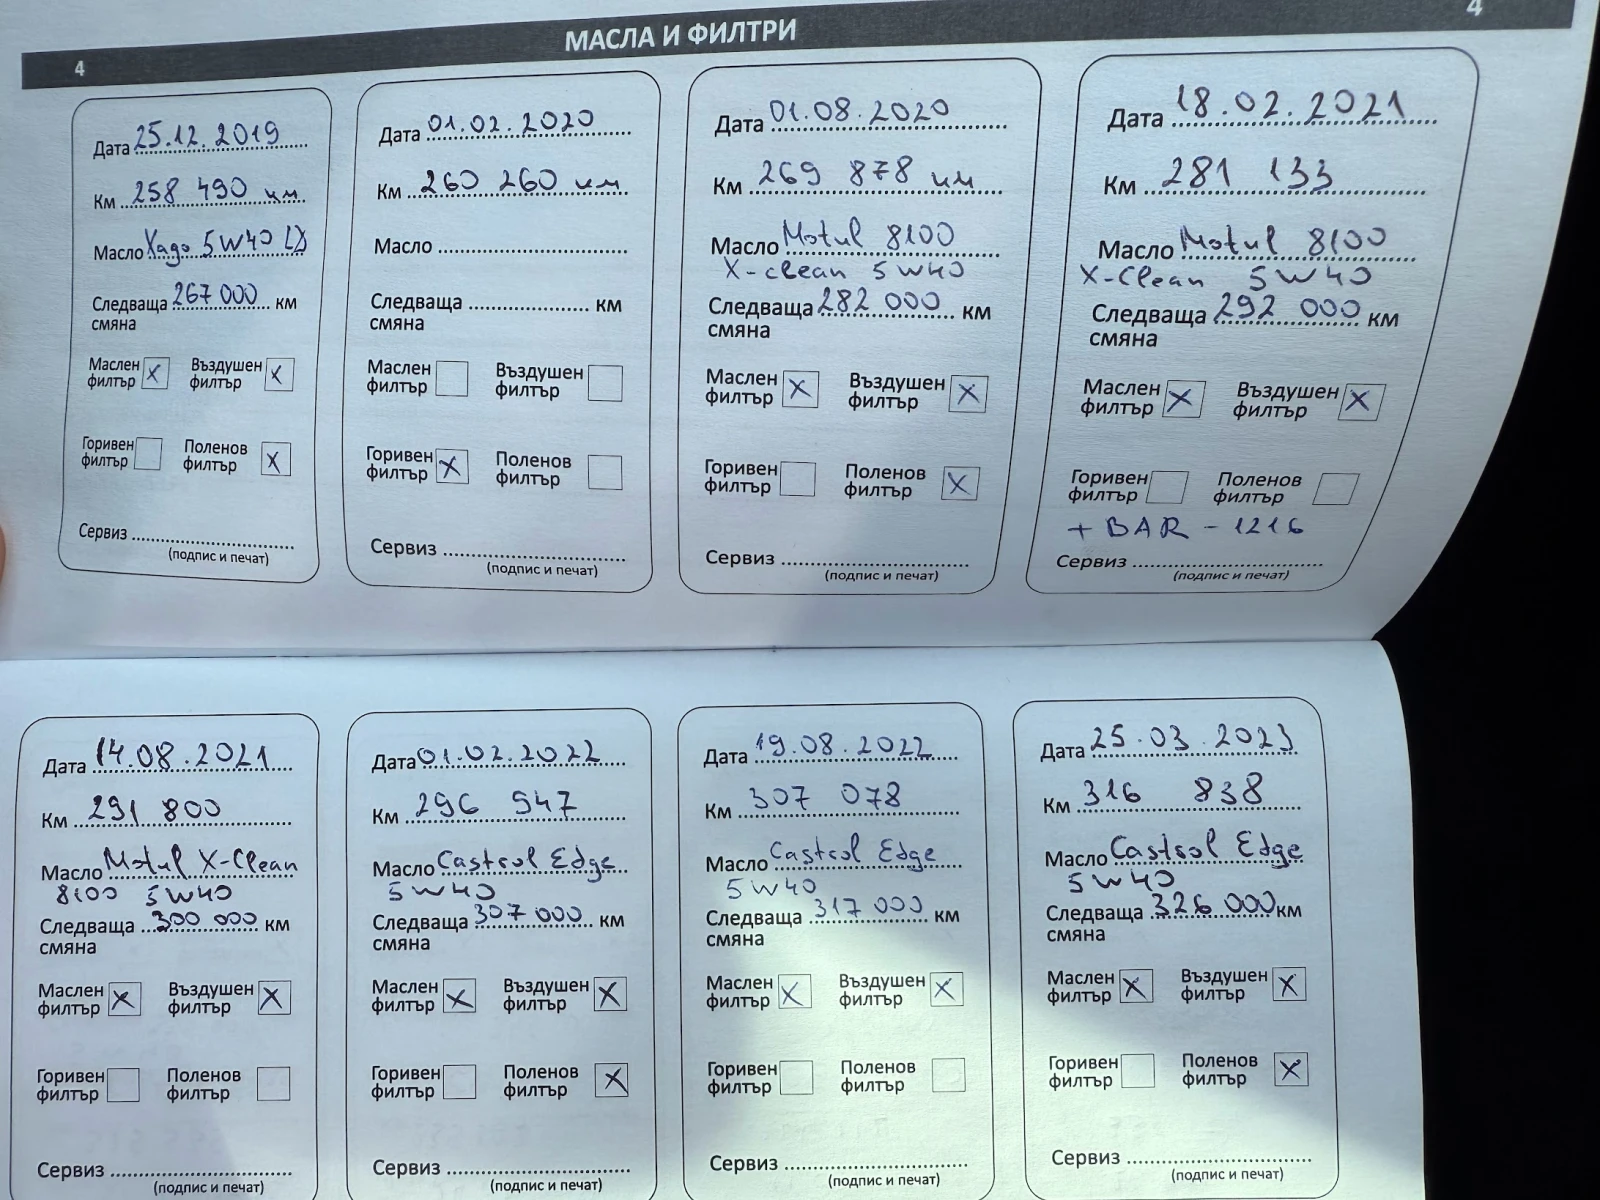 4 МАСЛА И ФИЛТРИ 4
Дата 25.12.2019
Км 258 490 км
Масло Xado 5W40
Следваща 267 000 км
смяна
Маслен филтър X Въздушен филтър X
Горивен филтър Поленов филтър X
Сервиз
(подпис и печат)
Дата 01.02.2020
Км 260 260 км
Масло
Следваща км
смяна
Маслен филтър Въздушен филтър
Горивен филтър X Поленов филтър
Сервиз
(подпис и печат)
Дата 01.08.2020
Км 269 878 км
Масло Motul 8100
X-clean 5W40
Следваща 282 000 км
смяна
Маслен филтър X Въздушен филтър X
Горивен филтър Поленов филтър X
Сервиз
(подпис и печат)
Дата 18.02.2021
Км 281 133
Масло Motul 8100
X-Clean 5W40
Следваща 292 000 км
смяна
Маслен филтър X Въздушен филтър X
Горивен филтър Поленов филтър
+ BAR - 1216
Сервиз
(подпис и печат)
Дата 14.08.2021
Км 291 800
Масло Motul X-Clean
8100 5W40
Следваща 300 000 км
смяна
Маслен филтър X Въздушен филтър X
Горивен филтър Поленов филтър
Сервиз
(подпис и печат)
Дата 01.02.2022
Км 296 947
Масло Castrol Edge
5W40
Следваща 307 000 км
смяна
Маслен филтър X Въздушен филтър X
Горивен филтър Поленов филтър X
Сервиз
(подпис и печат)
Дата 19.08.2022
Км 307 078
Масло Castrol Edge
5W40
Следваща 317 000 км
смяна
Маслен филтър X Въздушен филтър X
Горивен филтър Поленов филтър
Сервиз
(подпис и печат)
Дата 25.03.2023
Км 316 838
Масло Castrol Edge
5W40
Следваща 326 000 км
смяна
Маслен филтър X Въздушен филтър X
Горивен филтър Поленов филтър X
Сервиз
(подпис и печат)